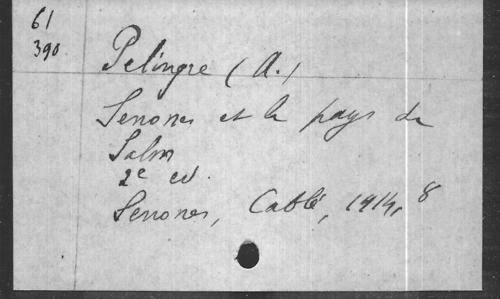 61
390
Pelingre (A.)
Senones et le pays de
Salm
2e ed.
Senones, Catlé, 1914, 8